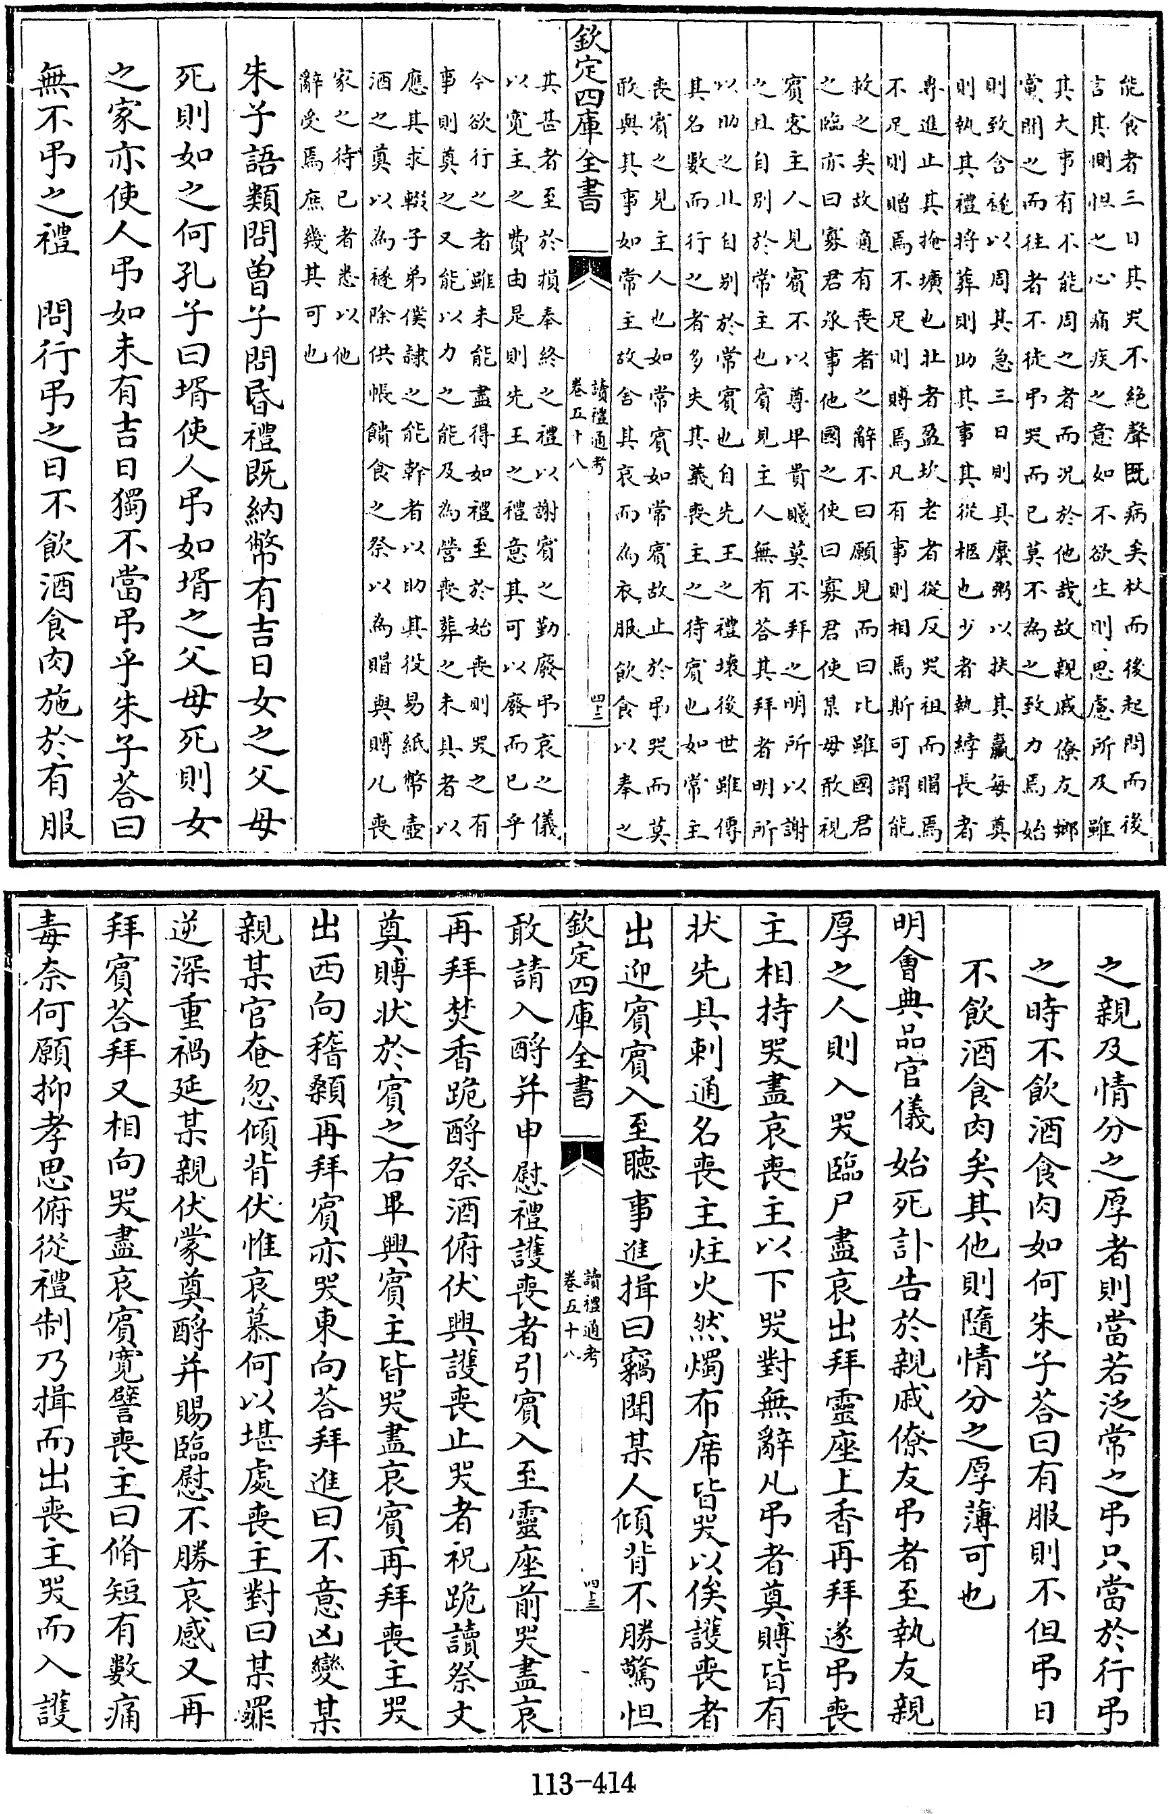 能食者三日其哭不絶聲既病矣杖而後起問而後
言其惻怛之心痛疾之意如不欲生則思慮所及雖
其大事有不能周之者而况於他哉故親戚僚友鄉
黨聞之而往者不徒弔哭而已莫不為之致力焉始
則致含襚以周其急三日則具糜粥以扶其羸每奠
則執其禮將葬則助其事其從柩也少者執紼長者
専進止其掩壙也壯者盈坎老者從反哭祖而賵焉
不足則贈焉不足則賻焉凡有事則相焉斯可謂能
救之矣故適有喪者之辭不曰願見而曰比雖國君
之臨亦曰寡君承事他國之使曰寡君使某毋敢視
賓客主人見賓不以尊卑貴賤莫不拜之明所以謝
之且自别於常主也賓見主人無有荅其拜者明所
以助之且自别於常賓也自先王之禮壞後世雖傳
其名數而行之者多失其義喪主之待賓也如常主
喪賓之見主人也如常賓如常賓故止於弔哭而莫
敢與其事如常主故舍其哀而為衣服飲食以奉之
欽定四庫全書
讀禮通考
卷五十八
四三
其甚者至於損奉終之禮以謝賓之勤廢弔哀之儀
以寛主之費由是則先王之禮意其可以廢而已乎
今欲行之者雖未能盡得如禮至於始喪則哭之有
事則奠之又能以力之能及為營喪葬之未具者以
應其求輟子弟僕隷之能幹者以助其役易紙幣壺
酒之奠以為襚除供帳饋食之祭以為賵與賻凡喪
家之待已者悉以他
辭受焉庶幾其可也
朱子語類問曽子問昏禮既納幣有吉日女之父母
死則如之何孔子曰壻使人弔如壻之父母死則女
之家亦使人弔如未有吉日獨不當弔乎朱子荅曰
無不弔之禮 問行弔之日不飲酒食肉施於有服
之親及情分之厚者則當若泛常之弔只當於行弔
之時不飲酒食肉如何朱子荅曰有服則不但弔日
不飲酒食肉矣其他則隨情分之厚薄可也
明會典品官儀始死訃告於親戚僚友弔者至執友親
厚之人則入哭臨尸盡哀出拜靈座上香再拜遂弔喪
主相持哭盡哀喪主以下哭對無辭凡弔者奠賻皆有
狀先具刺通名喪主炷火然燭布席皆哭以俟護喪者
出迎賓賓入至聽事進揖曰竊聞某人傾背不勝驚怛
欽定四庫全書
讀禮通考
卷五十八
四三
敢請入酹并申慰禮護喪者引賓入至靈座前哭盡哀
再拜焚香跪酹祭酒俯伏興護喪止哭者祝跪讀祭文
奠賻狀於賓之右畢興賓主皆哭盡哀賓再拜喪主哭
出西向稽顙再拜賓亦哭東向荅拜進曰不意凶變某
親某官奄忽傾背伏惟哀慕何以堪處喪主對曰某罪
逆深重禍延某親伏蒙奠酹并賜臨慰不勝哀感又再
拜賓荅拜又相向哭盡哀賓寛譬喪主曰脩短有數痛
毒奈何願抑孝思俯從禮制乃揖而出喪主哭而入護
113-414